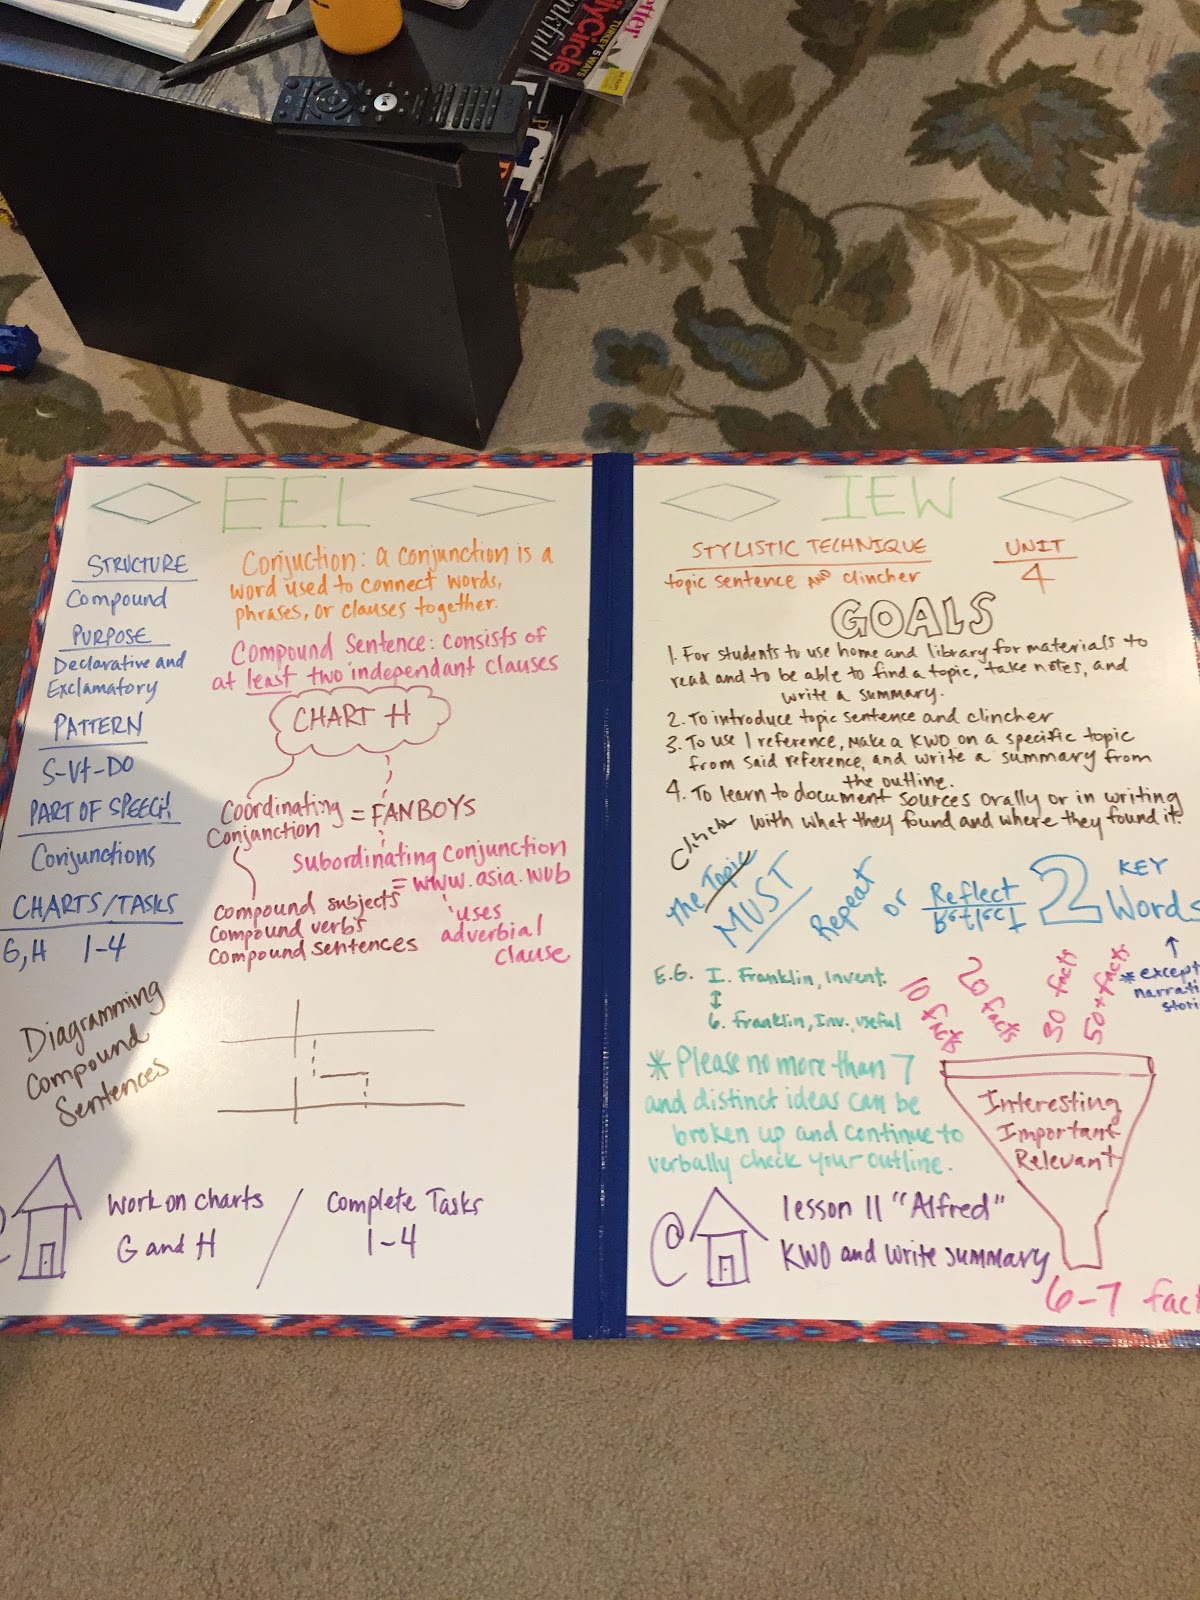 etter
ilyCircle
TURKEY 5 WAYS
EEL
STRUCTURE
Compound
PURPOSE
Declarative and
Exclamatory
PATTERN
S-Vt-DO
PART OF SPEECH!
Conjunctions
CHARTS/TASKS
G,H 1-4
Conjuction: a conjunction is a
word used to connect words,
phrases, or clauses together.
Compound Sentence: consists of
at least two independant clauses
CHART H
Coordinating
Conjunction = FANBOYS
Subordinating Conjunction
= www.asia.wub
Compound subjects
Compound verbs
Compound sentences
uses
adverbial
clause
Diagramming
Compound
Sentences
Work on charts
G and H
/
Complete Tasks
1-4
IEW
STYLISTIC TECHNIQUE
topic sentence AND clincher
UNIT
4
GOALS
1. For students to use home and library for materials to
read and to be able to find a topic, take notes, and
write a summary.
2. To introduce topic sentence and clincher
3. To use 1 reference, make a KWO on a specific topic
from said reference, and write a summary from
the outline.
4. To learn to document sources orally or in writing
with what they found and where they found it.
Clincher
The Topic
MUST
Repeat
or
Reflect
Reflect
2 KEY
Words
* except
narrati
stori
E.G. I. Franklin, Invent.
6. Franklin, Inv., useful
10 facts
20 facts
30 facts
50+ facts
* Please no more than 7
and distinct ideas can be
broken up and continue to
verbally check your outline.
Interesting
Important
Relevant
6-7 fact
@
lesson 11 "Alfred"
KWO and write summary